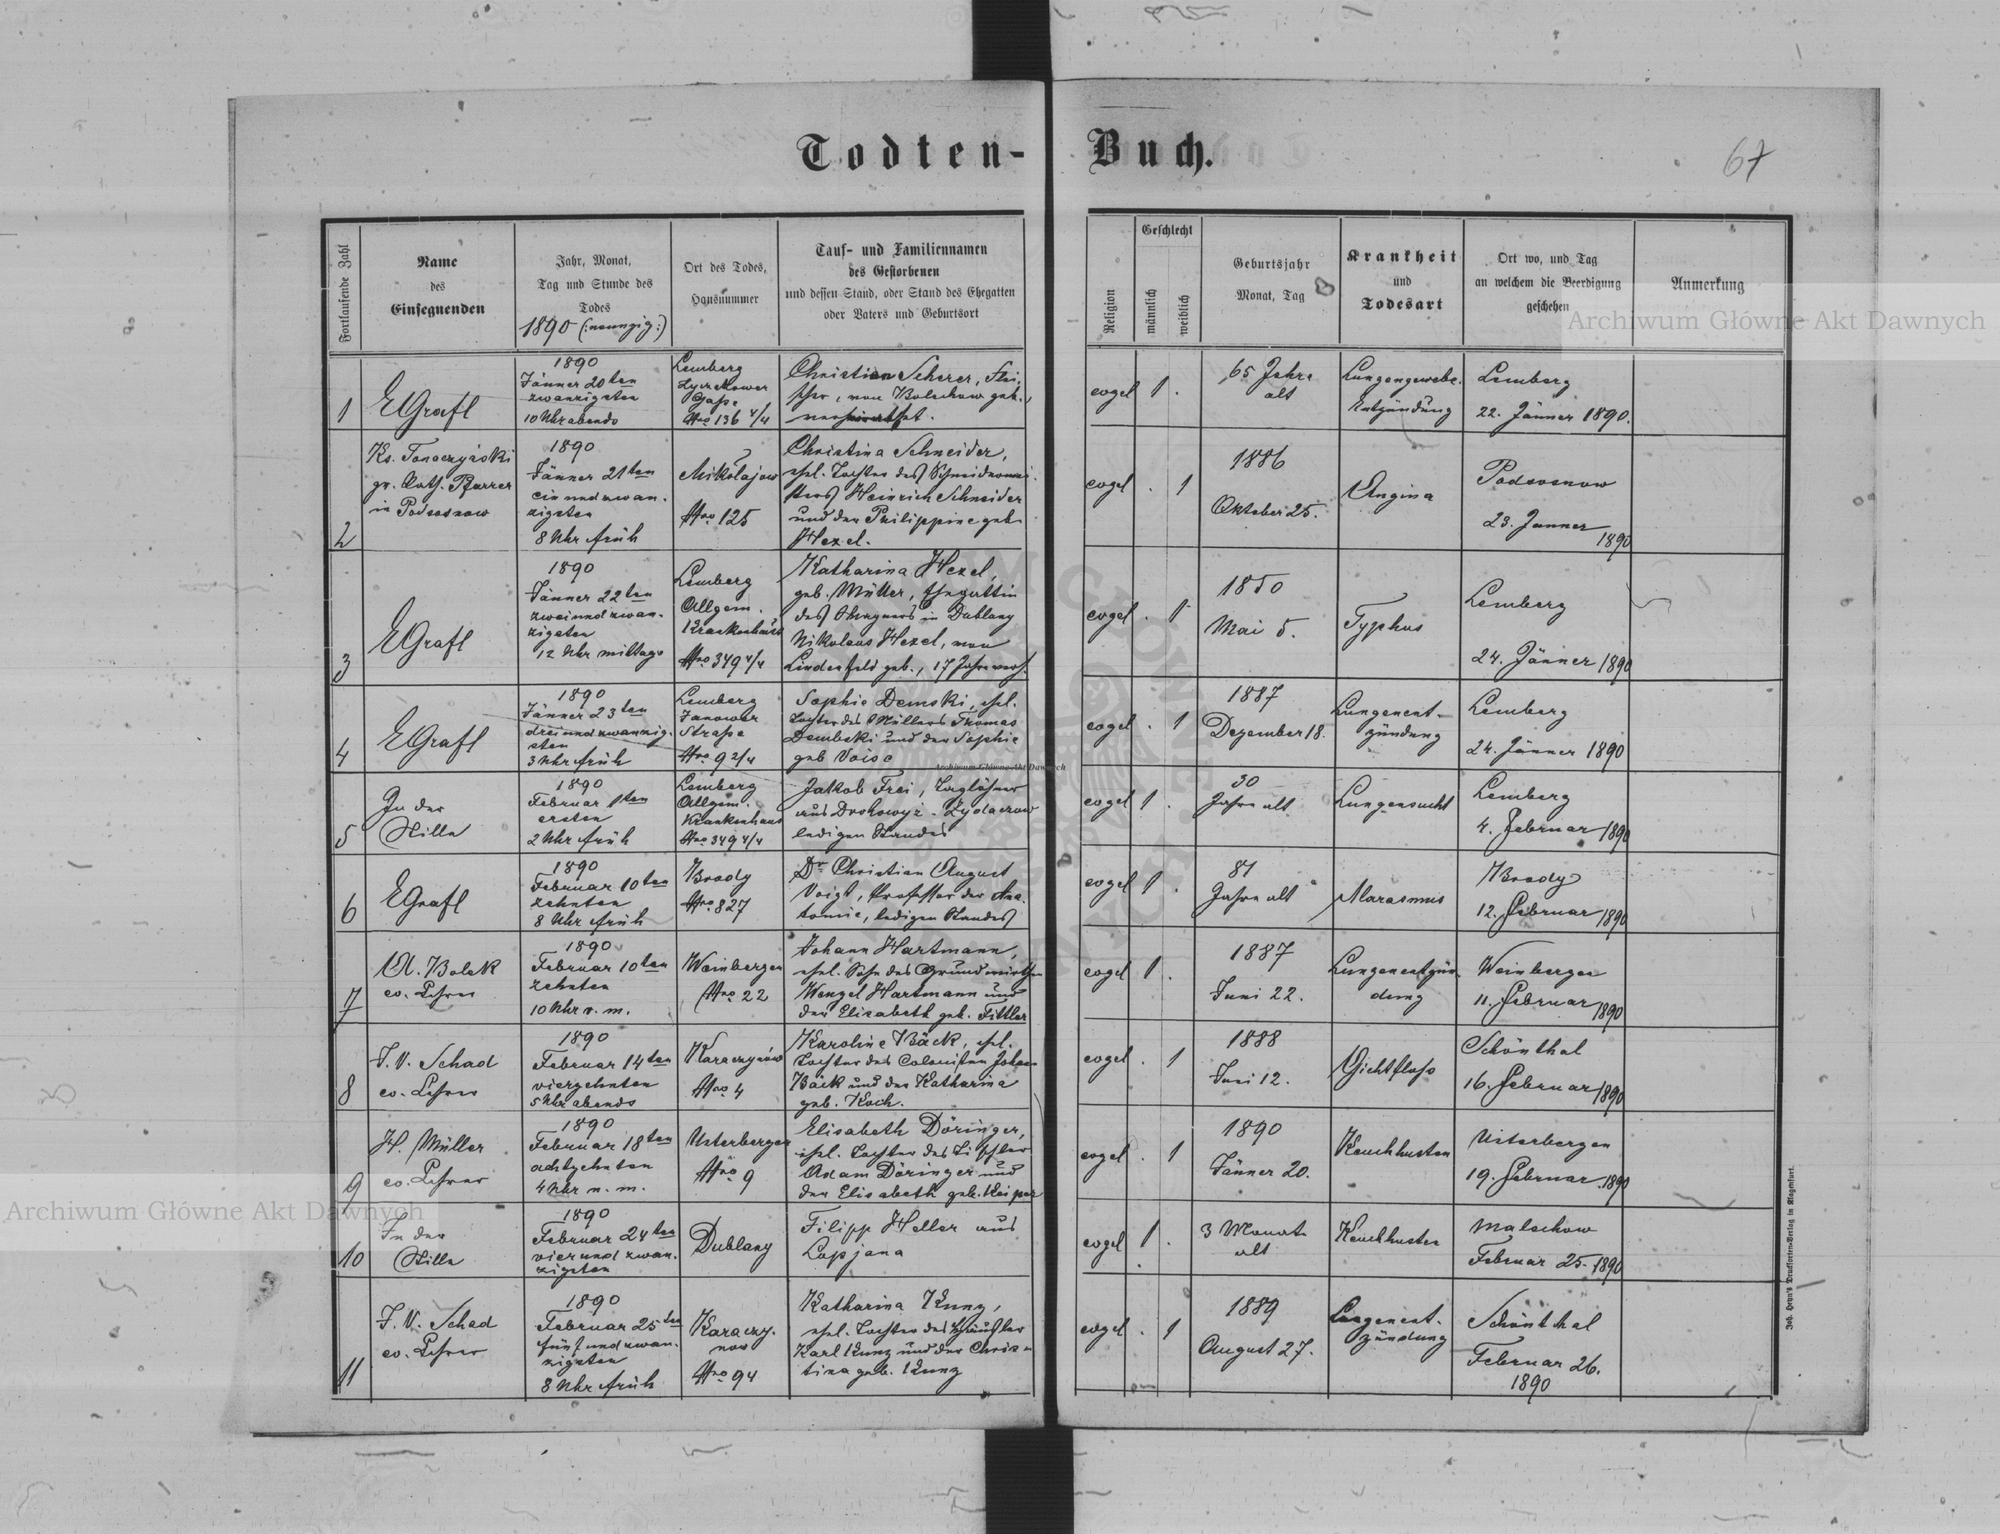 Todten-Buch.
67
Fortlaufende Zahl
Name
des
Einsegnenden
Jahr, Monat,
Tag und Stunde des
Todes
1890 (:neunzig:)
Ort des Todes,
Hausnummer
Tauf- und Familiennamen
des Gestorbenen
und dessen Stand, oder Stand des Ehegatten
oder Vaters und Geburtsort
Religion
Geschlecht
männlich
weiblich
Geburtsjahr
Monat, Tag
Krankheit
und
Todesart
Ort wo, und Tag
an welchem die Beerdigung
geschehen
Anmerkung
1
EGrafl
1890
Jänner 20ten
zwanzigsten
10 Uhr abends
Lemberg
Lyczakower
Gasse
Nro 136 4/4
Christian Scherer, Flei-
scher, von Bolechow geb.,
verheirathet.
evgel
1 .
65 Jahre
alt
Lungengewebe-
Entzündung
Lemberg
22. Jänner 1890.
2
gr. kath. Pfarrer
in Podsosnow
1890
Jänner 21ten
ein und zwan-
zigsten
8 Uhr früh
Mikolajow
Nro 125
Christina Schneider,
ehel. Tochter des Schneidermei-
sters Heinrich Schneider
und der Philippine geb.
Hexel.
evgel
. 1
1886
Oktober 25.
Angina
Podsosnow
23. Janner
1890
3
EGrafl
1890
Jänner 22ten
zwei und zwan-
zigsten
12 Uhr mittags
Lemberg
Allgem.
Krankenhaus
Nro 349 4/4
Katharina Hexel,
geb. Müller, Ehegattin
des in Dublany
Nikolaus Hexel, von
Lindenfeld geb., 17 Jahre verh.
evgel
. 1
1850
Mai 5.
Typhus
Lemberg
24. Jänner 1890
4
EGrafl
1890
Jänner 23ten
drei und zwanzig-
sten
3 Uhr früh
Lemberg
Janower
Strasse
Nro 9 2/4
Sophie Demski, ehel.
Tochter des Müllers Thomas
Dembski und der Sophie
geb Voise
evgel
. 1
1887
Dezember 18.
Lungenent-
zündung
Lemberg
24. Jänner 1890
5
In der
Stille
1890
Februar 1ten
ersten
2 Uhr früh
Lemberg
Allgem.
Krankenhaus
Nro 349 4/4
Jakob Frei, Taglöhner
aus Drohowyż - Zydaczow
ledigen Standes
evgel
1 .
30
Jahre alt
Lungensucht
Lemberg
4. Februar 1890
6
EGrafl
1890
Februar 10ten
zehnten
8 Uhr früh
Brody
Nro 827
Dr. Christian August
Voigt, Professor der Ana-
tomie, ledigen Standes
evgel
1 .
81
Jahre alt
Marasmus
Brody
12. Februar 1890
7
A. Bolek
ev. Lehrer
1890
Februar 10ten
zehnten
10 Uhr v. m.
Weinbergen
Nro 22
Johann Hartmann,
ehel. Sohn des Grundwirthen
Wenzel Hartmann und
der Elisabeth geb. Fittler
evgel
1 .
1887
Juni 22.
Lungenentzün-
dung
Weinbergen
11. Februar 1890
8
J. V. Schad
ev. Lehrer
1890
Februar 14ten
vierzehnten
5 Uhr abends
Karaczynów
Nro 4
Karoline Bäck, ehel.
Tochter des Colonisten Johann
Bäck und der Katharina
geb. Koch.
evgel
. 1
1888
Juni 12.
Gichtfluss
Schönthal
16. Februar 1890
9
H. Müller
ev. Lehrer
1890
Februar 18ten
achtzehnten
4 Uhr n. m.
Unterbergen
Nro 9
Elisabeth Döringer,
ehel. Tochter des Tischler
Adam Döringer und
der Elisabeth geb. Keiper
evgel
. 1
1890
Jänner 20.
Keuchhusten
Unterbergen
19. Februar 1890
10
In der
Stille
1890
Februar 24ten
vier und zwan-
zigsten
Dublany
Filipp Heller aus
Lopjana
evgel
1 .
3 Monate
alt
Keuchhusten
Malechow
Februar 25. 1890
11
J. V. Schad
ev. Lehrer
1890
Februar 25ten
fünf und zwan-
zigsten
8 Uhr früh
Karaczy-
now
Nro 94
Katharina Kunz,
ehel. Tochter des Häusler
Karl Kunz und der Chris-
tina geb. Kunz
evgel
. 1
1889
August 27.
Lungenent-
zündung
Schönthal
Februar 26.
1890
Joh. Heyn's Drucksorten-Verlag in Klagenfurt.
Archiwum Główne Akt Dawnych
Archiwum Główne Akt Dawnych
Archiwum Główne Akt Dawnych